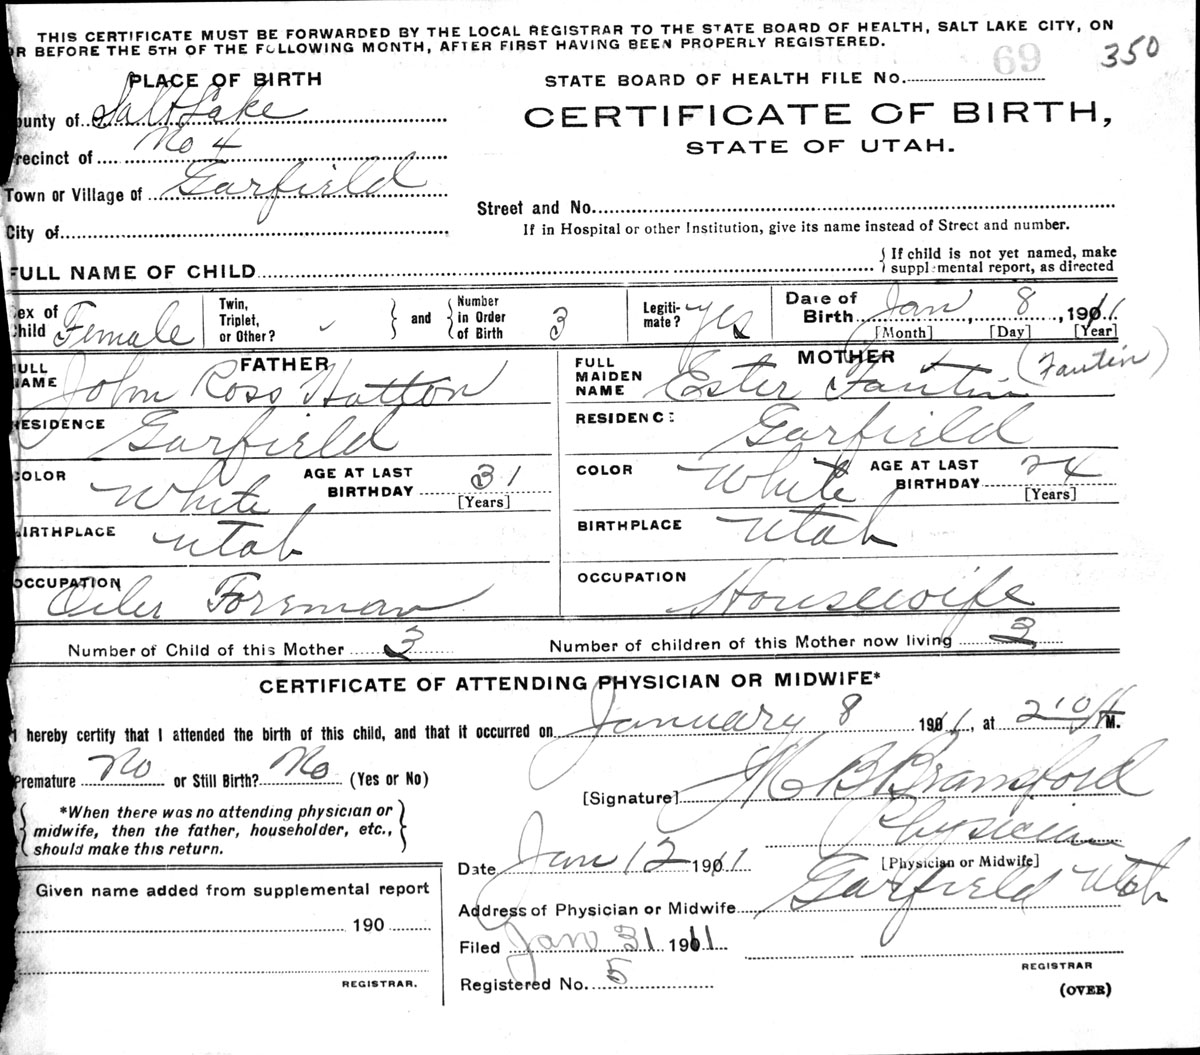 THIS CERTIFICATE MUST BE FORWARDED BY THE LOCAL REGISTRAR TO THE STATE BOARD OF HEALTH, SALT LAKE CITY, ON
OR BEFORE THE 5TH OF THE FOLLOWING MONTH, AFTER FIRST HAVING BEEN PROPERLY REGISTERED.
350
PLACE OF BIRTH
STATE BOARD OF HEALTH FILE No. 69
County of Salt Lake
CERTIFICATE OF BIRTH,
Precinct of No 4
STATE OF UTAH.
Town or Village of Garfield
Street and No.
City of
If in Hospital or other Institution, give its name instead of Street and number.
FULL NAME OF CHILD
If child is not yet named, make
supplemental report, as directed
Sex of Child Female
Twin, Triplet, or Other?
and
Number in Order of Birth 3
Legitimate? yes
Date of Birth Jan 8, 1911
[Month] [Day] [Year]
FATHER
FULL NAME John Ross Hatton
MOTHER
FULL MAIDEN NAME Ester Fautin (Fautin)
RESIDENCE Garfield
RESIDENCE Garfield
COLOR White
AGE AT LAST BIRTHDAY 31
[Years]
COLOR White
AGE AT LAST BIRTHDAY 24
[Years]
BIRTHPLACE Utah
BIRTHPLACE Utah
OCCUPATION Oiler Foreman
OCCUPATION Housewife
Number of Child of this Mother 3
Number of children of this Mother now living 3
CERTIFICATE OF ATTENDING PHYSICIAN OR MIDWIFE*
I hereby certify that I attended the birth of this child, and that it occurred on January 8 1911, at 2:10 M.
Premature No or Still Birth? No (Yes or No)
[Signature] M B Bransford
*When there was no attending physician or
midwife, then the father, householder, etc.,
should make this return.
Physician
[Physician or Midwife]
Date Jan 12 1911
Given name added from supplemental report
190
REGISTRAR.
Address of Physician or Midwife Garfield Utah
Filed Jan 31 1911
REGISTRAR
Registered No. 5
(OVER)